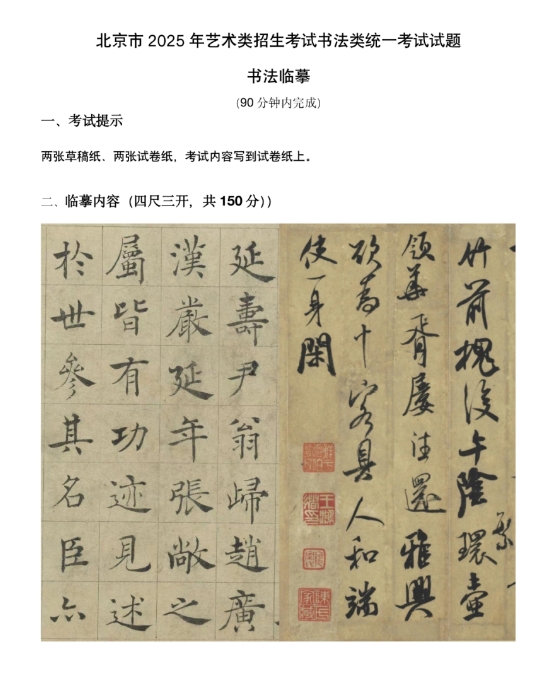 北京市 2025 年艺术类招生考试书法类统一考试试题
书法临摹
(90 分钟内完成)
一、考试提示
两张草稿纸、两张试卷纸，考试内容写到试卷纸上。
二、临摹内容（四尺三开，共 150 分））
延壽尹翁歸趙廣
漢嚴延年張敞之
屬皆有功迹見述
於世參其名臣亦
竹前槐後午陰環壺
繁
領華胥屢往還雅興
欲為十客具人和端
使一身閑